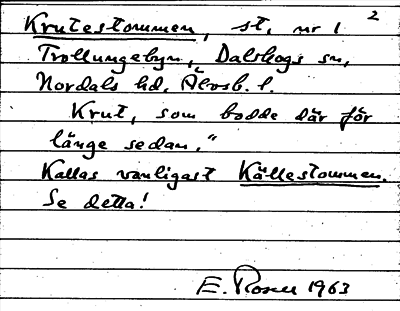 2
Krutestommen, st. nr 1
Trollungebyn, Dalskogs sn,
Nordals hd, Älvsb. l.
Krut, som bodde där för
länge sedan."
Kallas vanligast Källestommen.
Se detta!
E. Rosell 1963